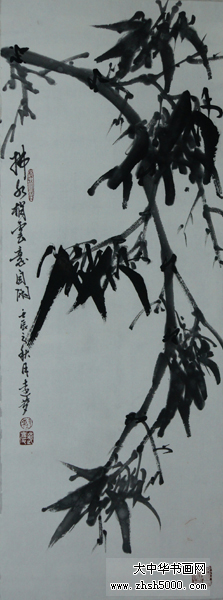 拂水捎雲意自闲
壬辰之秋月
大中华书画网
www.zhsh5000.com